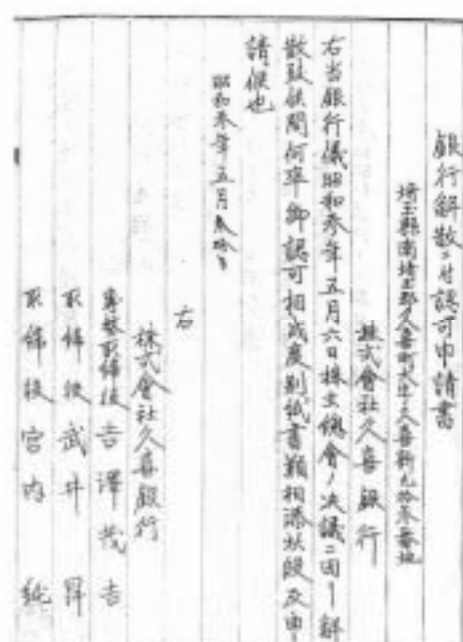 銀行解散ニ付認可申請書
埼玉縣南埼玉郡久喜町大字久喜新九拾参番地
株式會社久喜銀行
右当銀行儀昭和参年五月六日株主總會ノ决議ニ因リ解
散致候間何卒御認可相成度別紙書類相添此段及申
請候也
昭和参年五月
右
株式會社久喜銀行
専務取締役吉澤茂吉
取締役武井昇
取締役宮内純